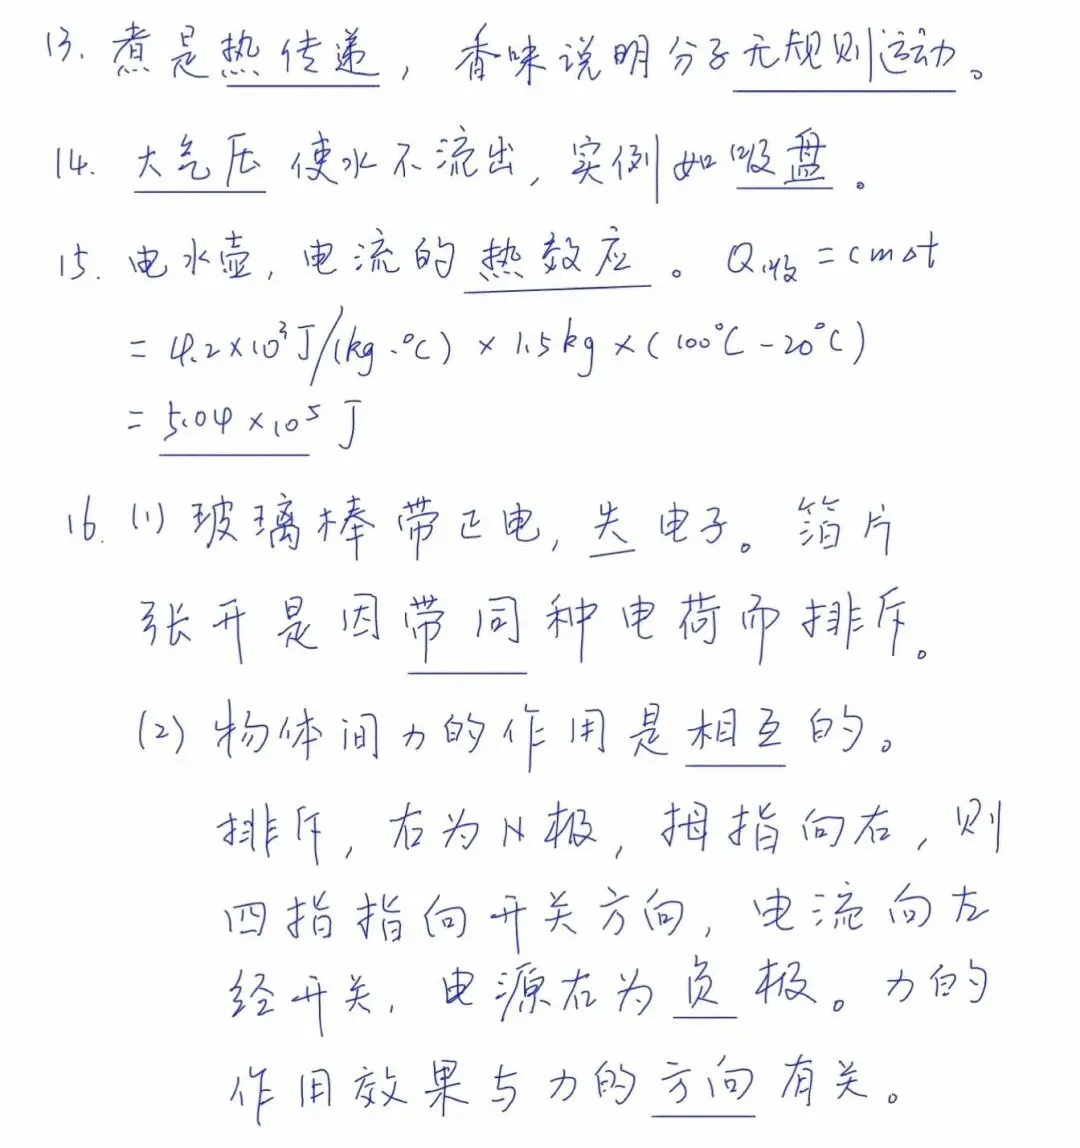 13. 煮是热传递，香味说明分子无规则运动。
14. 大气压使水不流出，实例如吸盘。
15. 电水壶，电流的热效应。Q吸=cmΔt
= 4.2×10³J/(kg·℃)×1.5kg×(100℃-20℃)
= 5.04×10⁵ J
16. (1) 玻璃棒带正电，失电子。箔片
张开是因带同种电荷而排斥。
(2) 物体间力的作用是相互的。
排斥，右为N极，拇指向右，则
四指指向开关方向，电流向左
经开关，电源右为负极。力的
作用效果与力的方向有关。